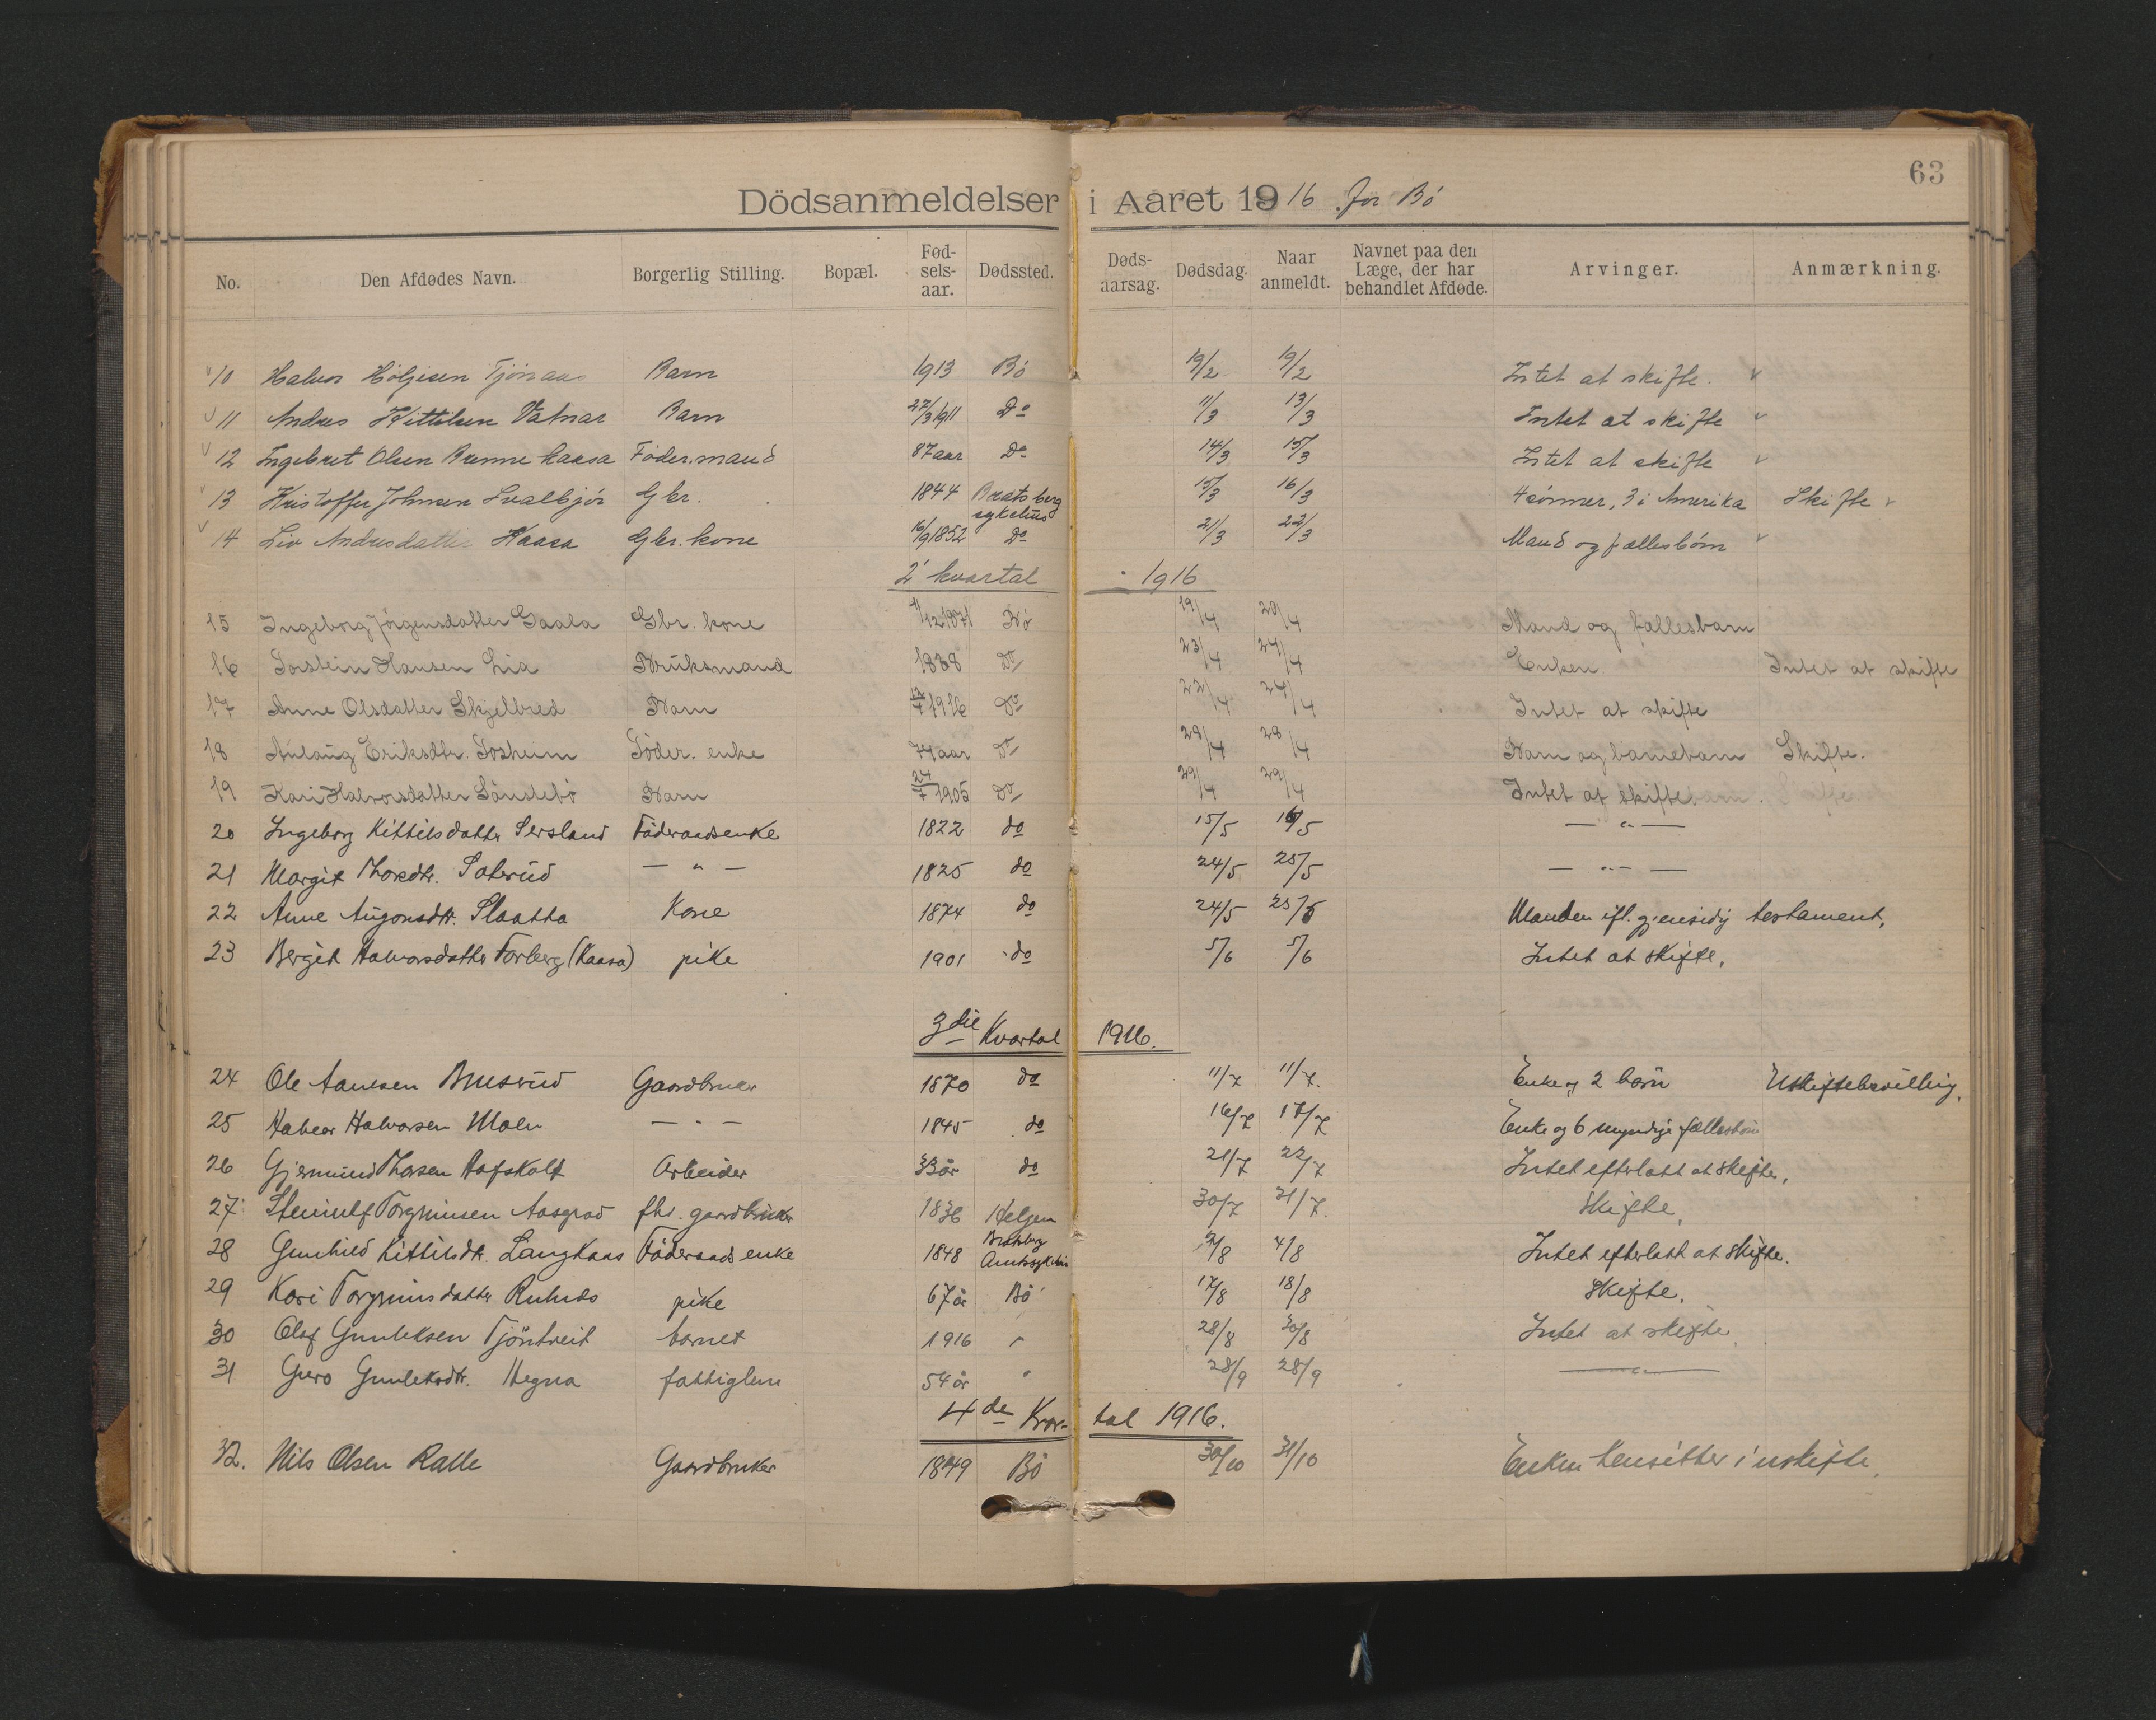 63
Dödsanmeldelser i Aaret 1916 for Bö
No. Den Afdødes Navn. Borgerlig Stilling. Bopæl. Fødselsaar. Dødssted. Dødsaarsag. Dødsdag. Naar anmeldt. Navnet paa den Læge, der har behandlet Afdøde. Arvinger. Anmærkning.
10 Halvor Höljesen Barn 1913 Bö 19/2 19/2 Intet at skifte.
11 Andres Kittilsen Vatnar Barn 27/3 1911 Do 11/3 13/3 Intet at skifte
12 Ingebret Olsen Brennekaasa Föder.mand 87 aar Do 14/3 15/3 Intet at skifte
13 Kristoffer Johnsen Svalbjör Gbr. 1844 Bratsberg sykehus 15/3 16/3 4 sönner, 3 i Amerika Skifte
14 Liv Andresdatter Haasa Gbr. kone 16/9 1852 Do 21/3 22/3 Mand og fællesbörn
2' kvartal 1916
15 Ingeborg Jörgensdatter Gaala Gbr. kone 1/12 1871 Bö 19/4 20/4 Mand og fællesbarn
16 Torstein Hansen Lia Bruksmand 1838 Do 23/4 24/4 Enken. Intet at skifte
17 Anne Olsdatter Skjelbred Barn 1916 Do 22/4 24/4 Intet at skifte
18 Aslaug Eriksdtr. Tosheim Föder. enke 74 aar Do 28/4 28/4 Barn og barnebarn Skifte.
19 Kari Halvorsdatter Sönstebö Barn 1905 Do 29/4 29/4 Intet at skifte
20 Ingeborg Kittilsdatter Sersland Föderaadsenke 1822 do 15/5 16/5 — " —
21 Margit Thorsdtr. Saterud — " — 1825 do 24/5 25/5 — " —
22 Anne Slaatta Kone 1874 do 24/5 25/5 Manden ifl. gjensidig testament.
23 Bergit Halvorsdatter Forberg (Kaasa) pike 1901 do 5/6 5/6 Intet at skifte.
3die Kvartal 1916.
24 Ole Aanesen Bruserud Gaardbruker 1870 do 11/7 11/7. Enke og 2 barn Uskiftebevilling.
25 Halvor Halvorsen Moen — " — 1845 do 16/7 17/7 Enke og 6 myndige fællesbörn
26 Gjermund Thorsen Arbeider 33 år do 21/7 22/7 Intet efterlatt at skifte.
27 Steinulf Torgrimsen Aasgrav fhv. gaardbruker 1836 Helgen 30/7 31/7. Skifte.
28 Gunhild Kittilsdtr. Langkaas Föderaads enke 1848 Bratsberg Amtssykehus 4/8 Intet efterlatt at skifte.
29 Kari Torgrimsdatter pike 67 år Bö 17/8 18/8 Skifte.
30 Olaf Gunleksen Tjöntveit barnet 1916 " 28/8 30/8 Intet at skifte
31 Guro Gunleksdtr. Hegna fattiglem 54 år " 28/9 28/9 — " —
4de Kvartal 1916.
32. Nils Olsen Kalle Gaardbruker 1849 Bö 30/10 31/10 Enken hensitter i uskifte.